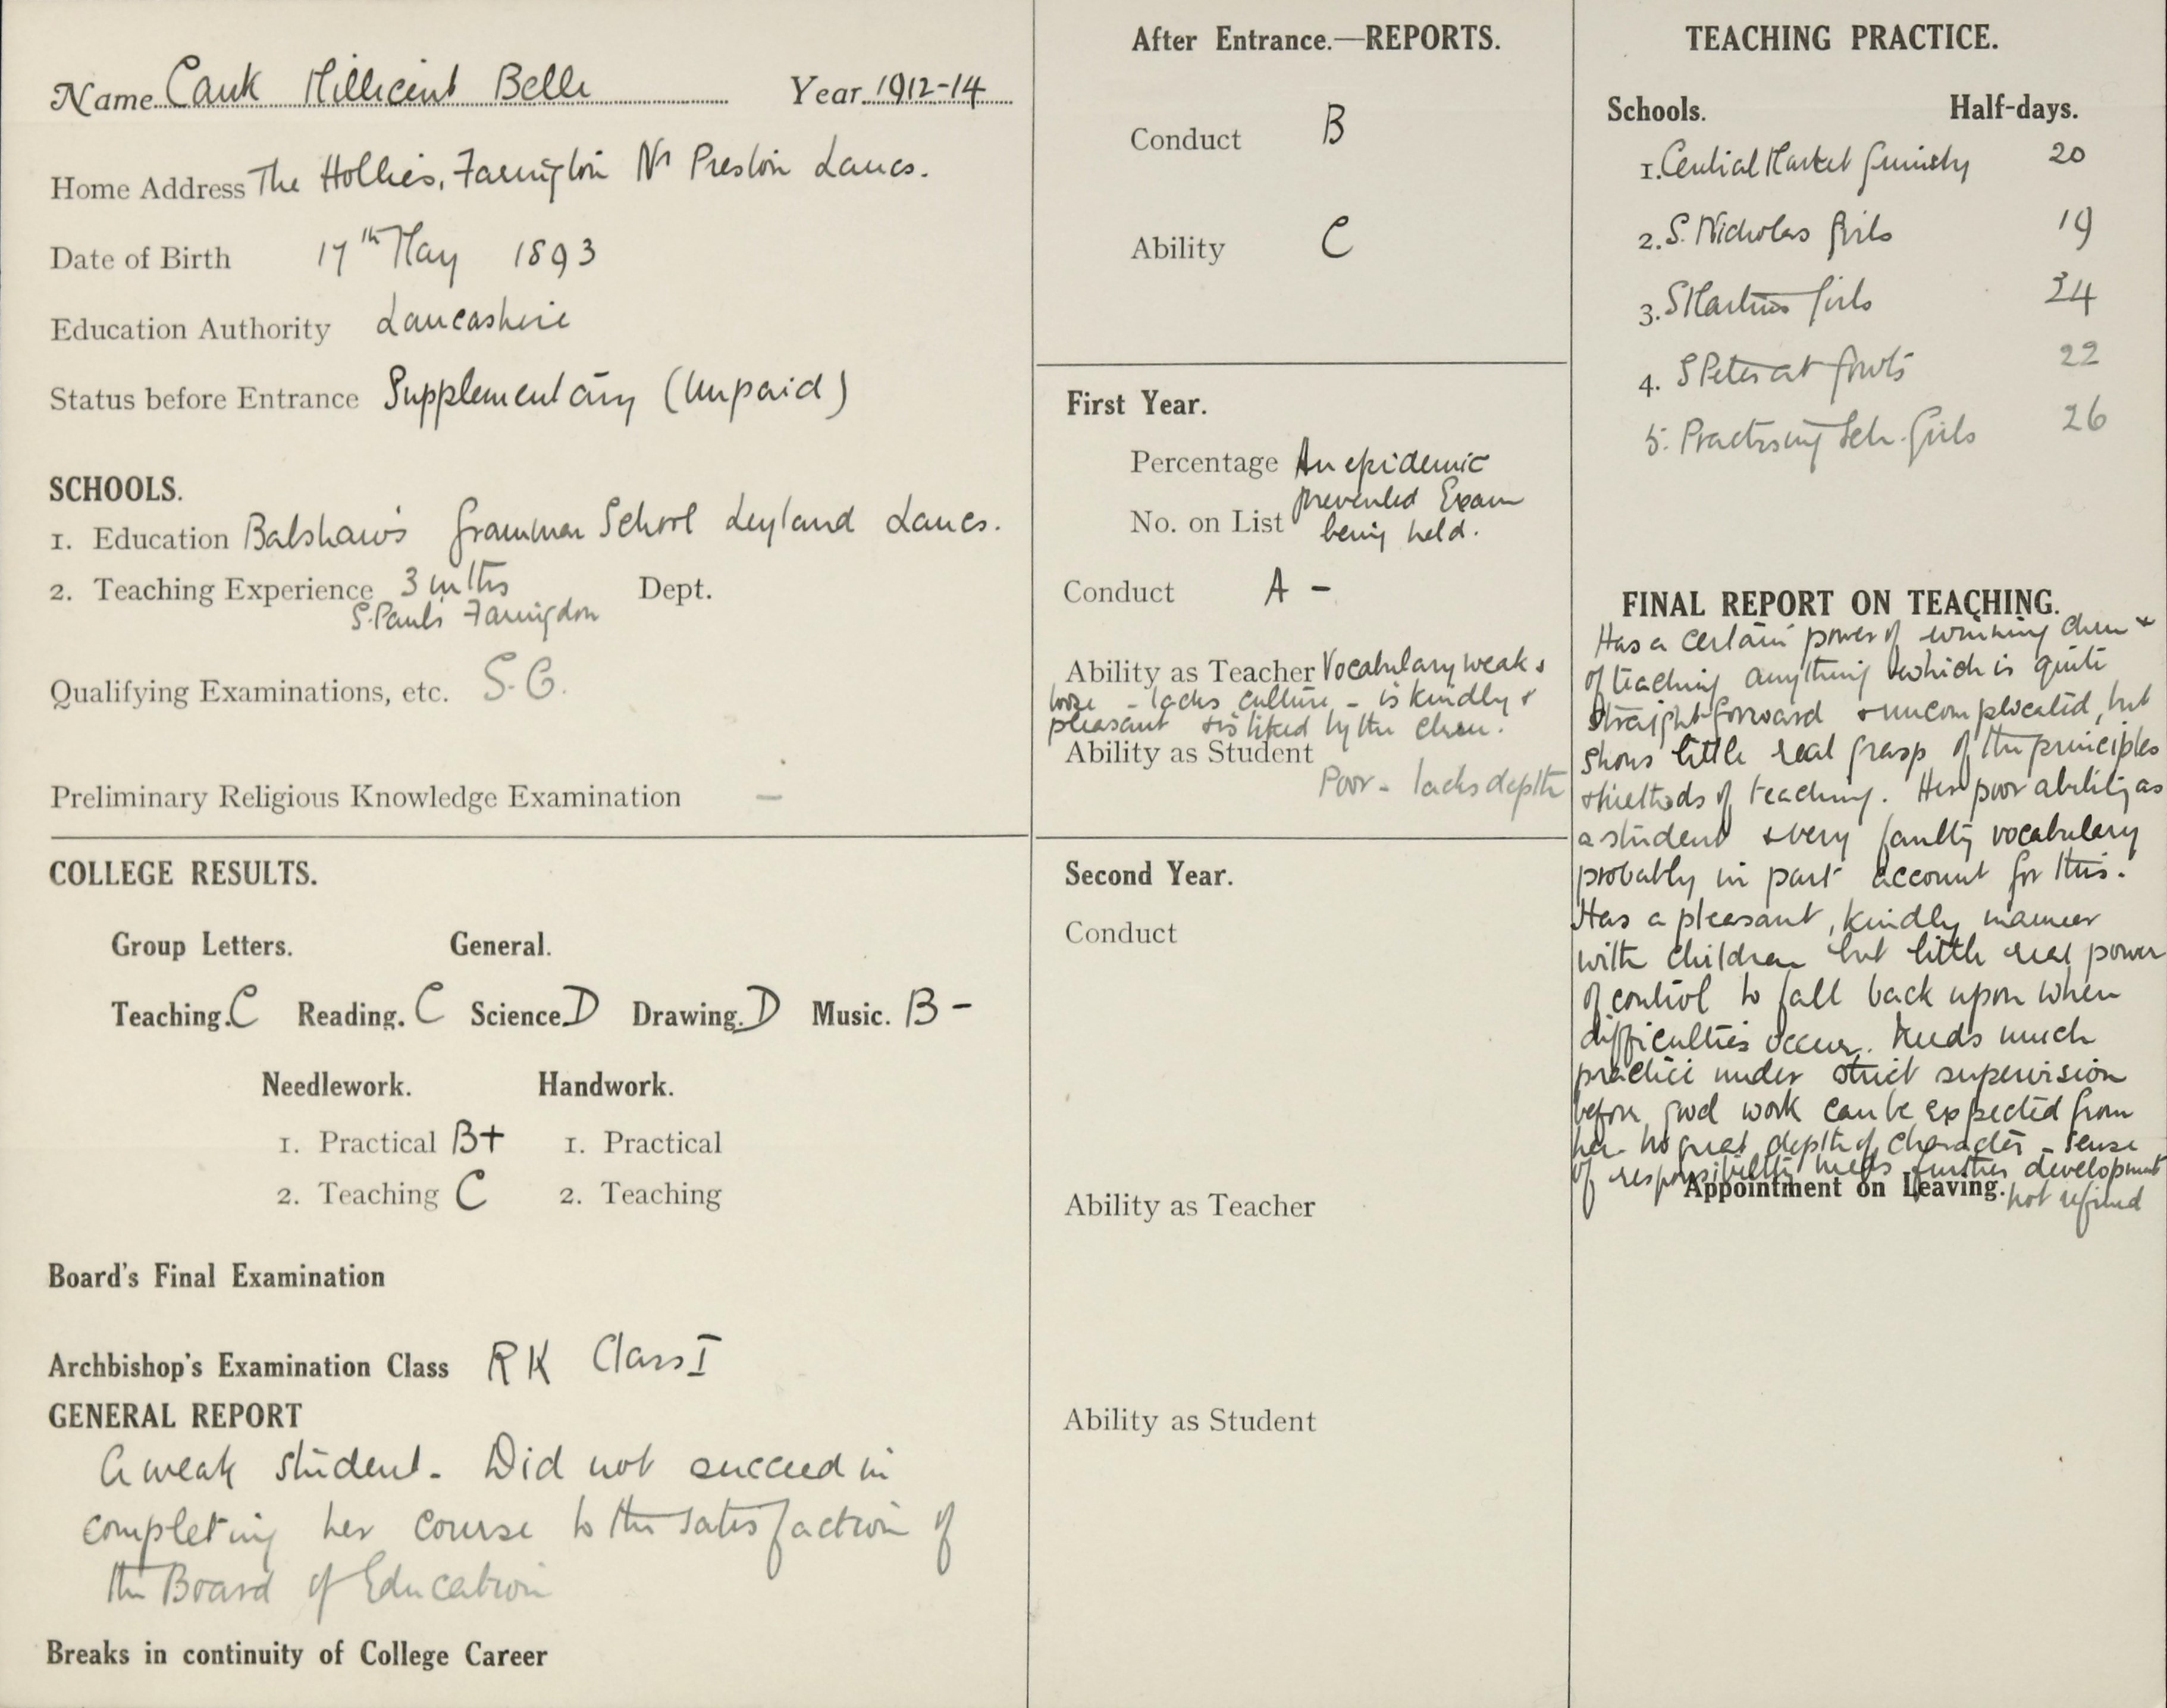 Name Cank Millicent Belle Year 1912-14
Home Address The Hollies, Farington Nr Preston Lancs.
Date of Birth 17th May 1893
Education Authority Lancashire
Status before Entrance Supplementary (Unpaid)
SCHOOLS.
1. Education Balshaw's Grammar School Leyland Lancs.
2. Teaching Experience 3 mths Dept.
S. Paul's Faringdon
Qualifying Examinations, etc. S.C.
Preliminary Religious Knowledge Examination –
COLLEGE RESULTS.
Group Letters. General.
Teaching. C Reading. C Science. D Drawing. D Music. B -
Needlework. Handwork.
1. Practical B+ 1. Practical
2. Teaching C 2. Teaching
Board's Final Examination
Archbishop's Examination Class R K Class I
GENERAL REPORT
A weak student. Did not succeed in
completing her course to the satisfaction of
the Board of Education
Breaks in continuity of College Career
After Entrance.—REPORTS.
Conduct B
Ability C
First Year.
Percentage An epidemic
prevented Exam
No. on List being held.
Conduct A -
Ability as Teacher Vocabulary weak &
loose - lacks culture - is kindly &
pleasant & is liked by the chen.
Ability as Student
Poor - lacks depth
Second Year.
Conduct
Ability as Teacher
Ability as Student
TEACHING PRACTICE.
Schools. Half-days.
1. Central Market 20
2. S. Nicholas Girls 19
3. S Martins Girls 24
4. S Peter at 22
5. Practising Sch. Girls 26
FINAL REPORT ON TEACHING.
Has a certain power of winning chen &
of teaching anything which is quite
straightforward & uncomplicated, but
shows little real grasp of the principles
& methods of teaching. Her poor ability as
a student & very faulty vocabulary
probably in part account for this.
Has a pleasant, kindly manner
with children but little real power
of control to fall back upon when
difficulties occur. Needs much
practice under strict supervision
before good work can be expected from
her. No great depth of character - sense
of responsibility needs further development
Appointment on Leaving. not refined